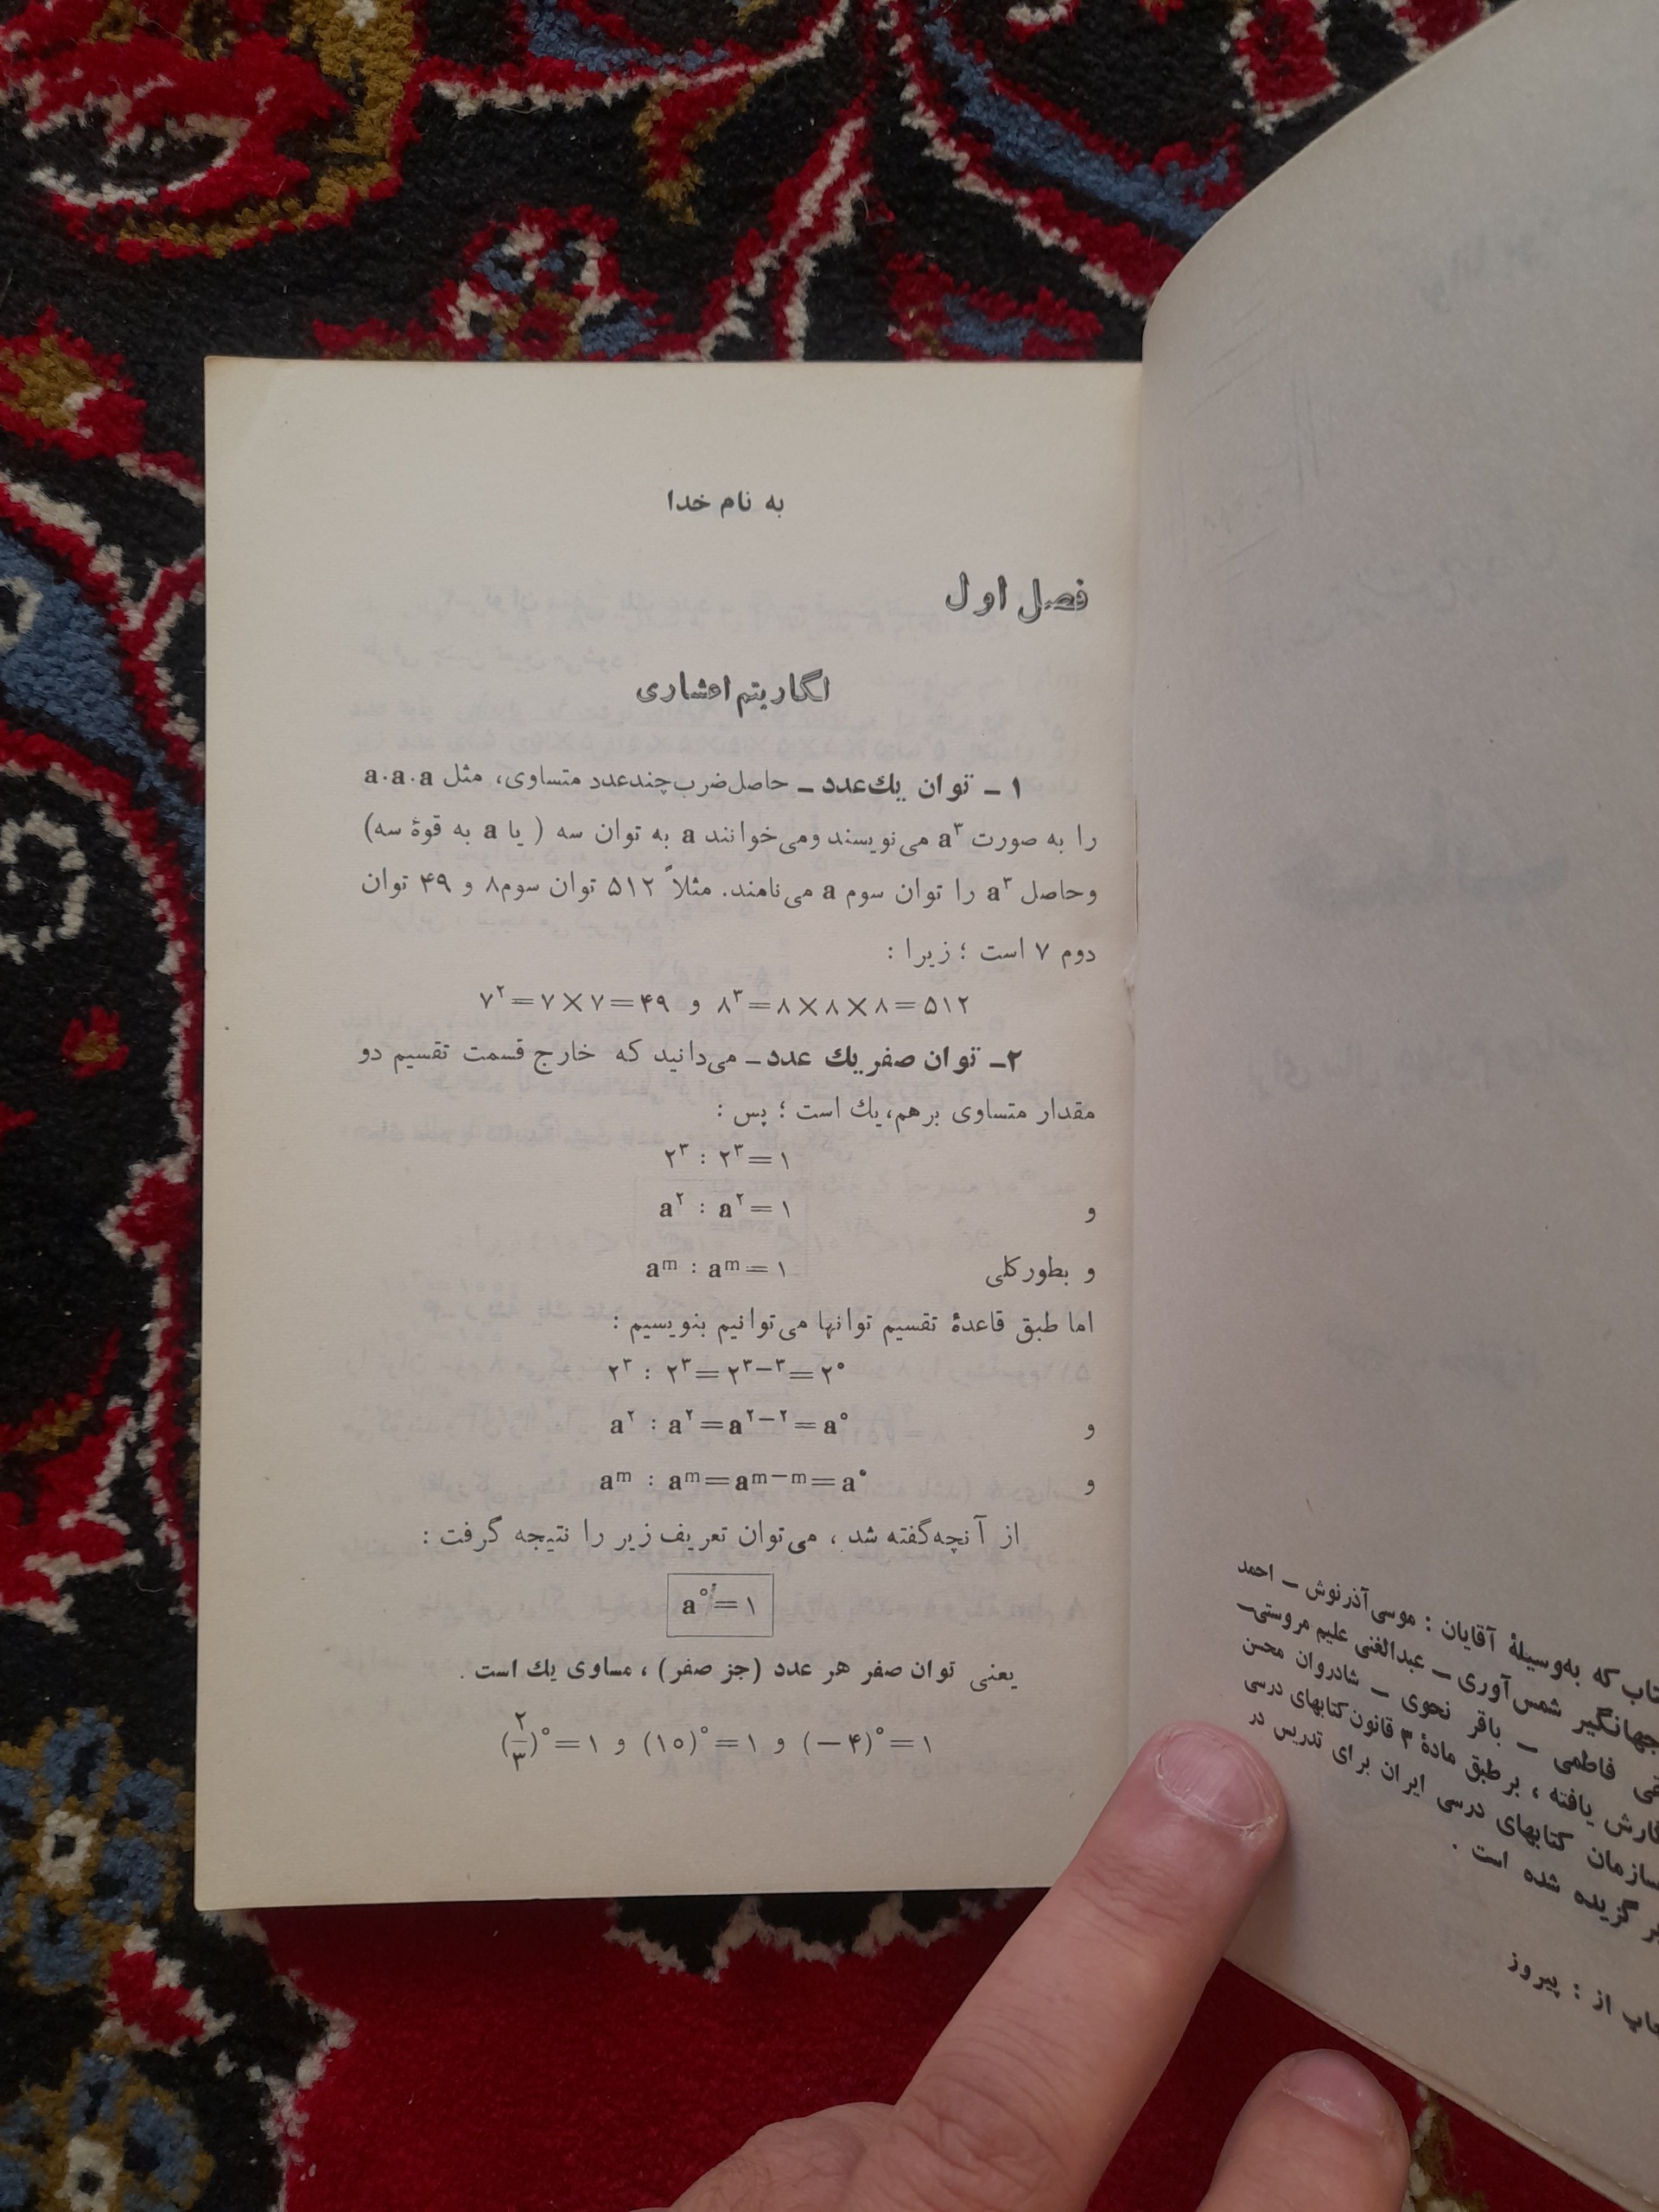 به نام خدا
فصل اول
لگاریتم اعشاری
۱ ـ توان یك عدد ـ حاصل ضرب چند عدد متساوی، مثل a.a.a
را به صورت a³ می‌نویسند و می‌خوانند a به توان سه ( یا a به قوهٔ سه)
وحاصل a³ را توان سوم a می‌نامند. مثلاً ۵۱۲ توان سوم ۸ و ۴۹ توان
دوم ۷ است ؛ زیرا :
۷²=۷×۷=۴۹ و ۸³=۸×۸×۸=۵۱۲
۲ـ توان صفر یك عدد ـ می‌دانید که خارج قسمت تقسیم دو
مقدار متساوی برهم، یك است ؛ پس :
۲³ : ۲³=۱
و a² : a²=۱
و بطورکلی aᵐ : aᵐ=۱
اما طبق قاعدهٔ تقسیم توانها می‌توانیم بنویسیم :
۲³ : ۲³=۲³⁻³=۲⁰
و a² : a²=a²⁻²=a⁰
و aᵐ : aᵐ=aᵐ⁻ᵐ=a⁰
از آنچه گفته شد ، می‌توان تعریف زیر را نتیجه گرفت :
a⁰=۱
یعنی توان صفر هر عدد (جز صفر) ، مساوی یك است .
(۲/۳)⁰=۱ و (۱۰)⁰=۱ و (−۴)⁰=۱
که به‌وسیلهٔ آقایان : موسی آذرنوش ـ احمد
جهانگیر شمس‌آوری ـ عبدالغنی علیم مروستی ـ
فاطمی ـ باقر نحوی ـ شادروان محسن
یافته ، برطبق مادهٔ ۳ قانون کتابهای درسی
سازمان کتابهای درسی ایران برای تدریس در
گزیده شده است .
از : پیروز